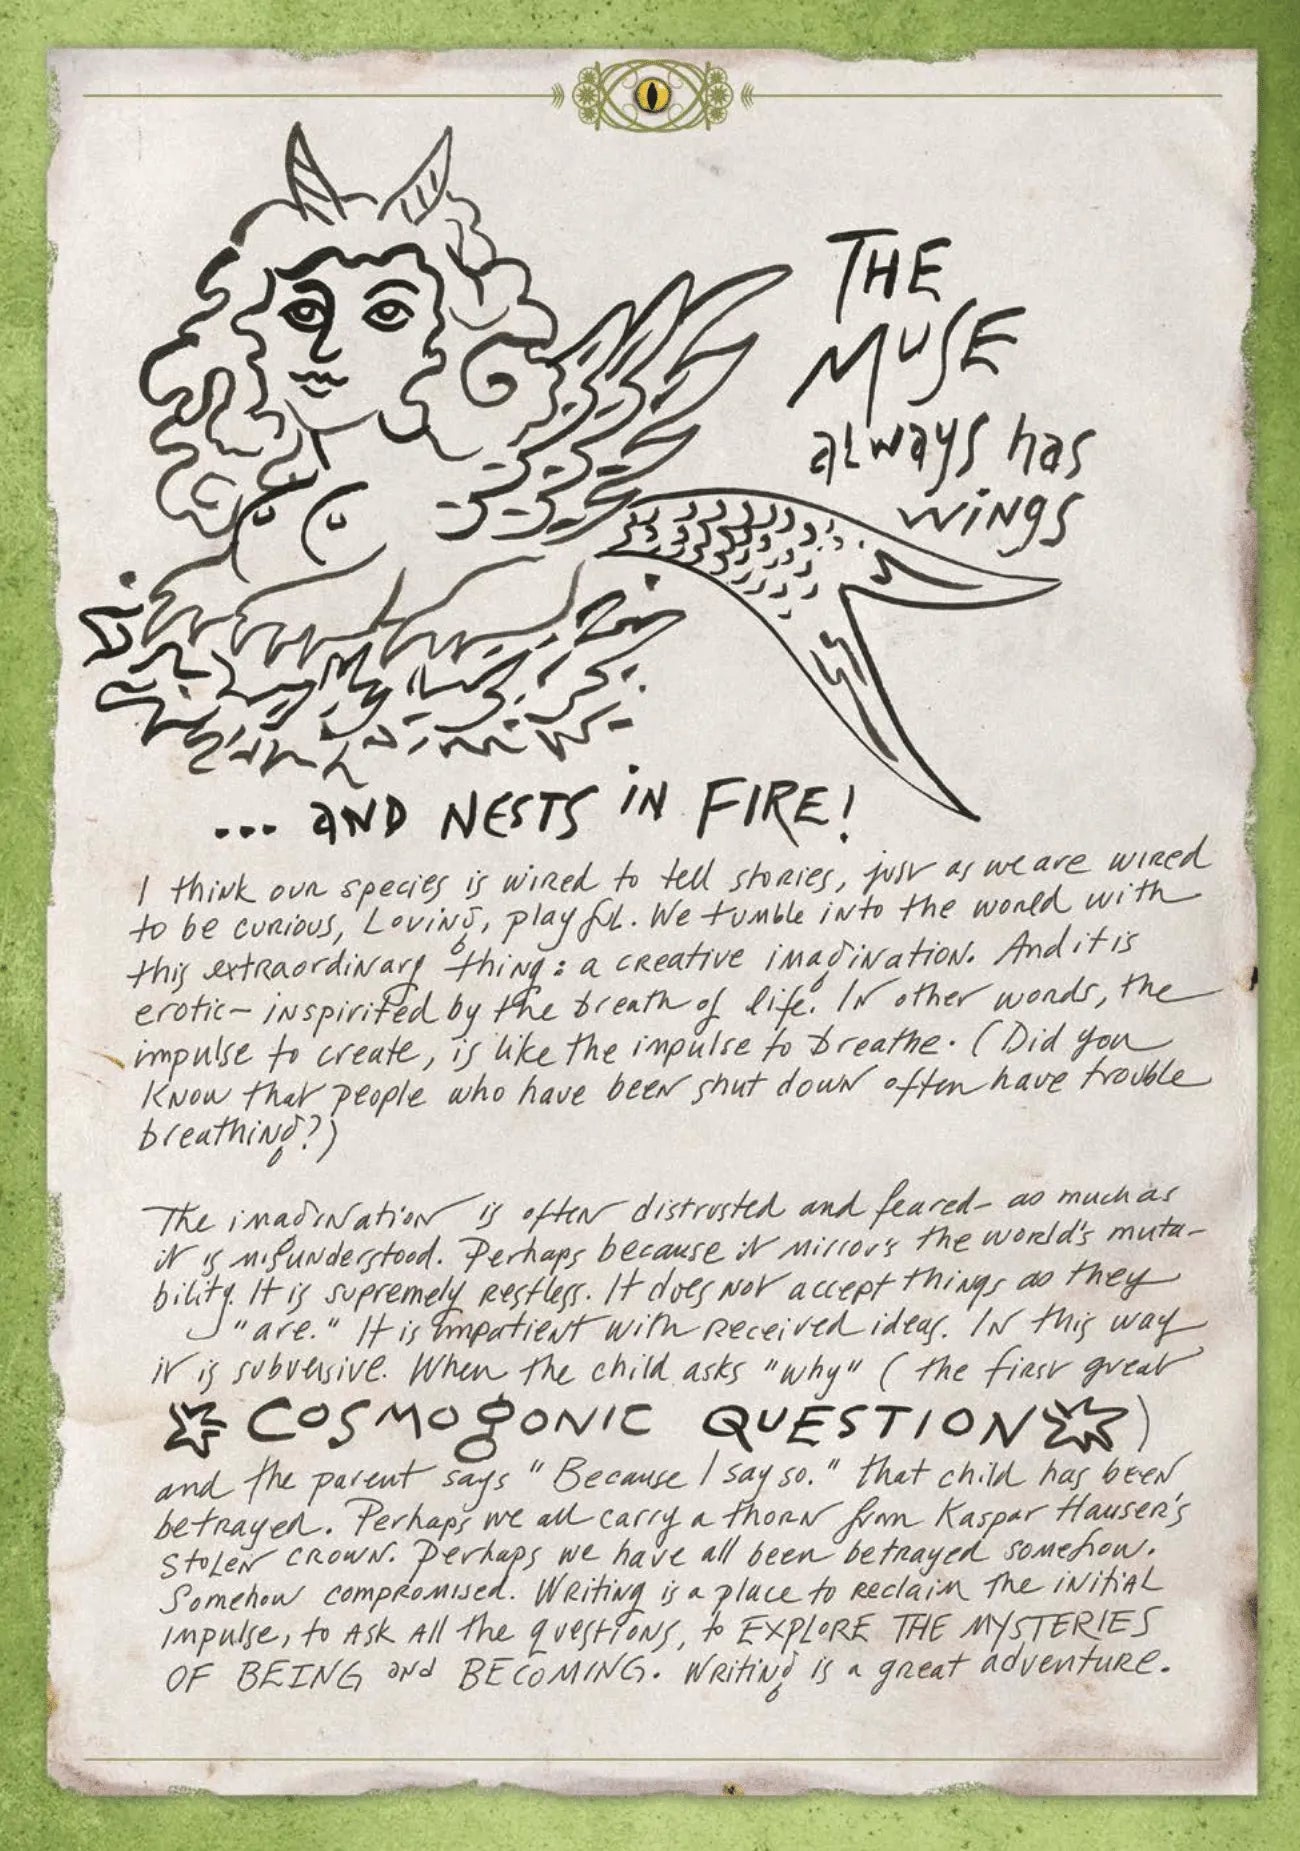 THE
MUSE
always has
wings
... and NESTS in FIRE!
I think our species is wired to tell stories, just as we are wired
to be curious, Loving, playful. We tumble into the world with
this extraordinary thing: a creative imagination. And it is
erotic—inspirited by the breath of life. In other words, the
impulse to create, is like the impulse to breathe. (Did you
Know that people who have been shut down often have trouble
breathing?)
The imagination is often distrusted and feared—as much as
it is misunderstood. Perhaps because it mirrors the world's muta-
bility. It is supremely restless. It does not accept things as they
"are." It is impatient with received ideas. In this way
it is subversive. When the child asks "why" (the first great
COSMOgONIC QUESTION)
and the parent says "Because I say so." that child has been
betrayed. Perhaps we all carry a thorn from Kaspar Hauser's
Stolen crown. Perhaps we have all been betrayed somehow.
Somehow compromised. Writing is a place to reclaim the initial
impulse, to ask all the questions, to EXPLORE THE MYSTERIES
OF BEING and BECOMING. Writing is a great adventure.